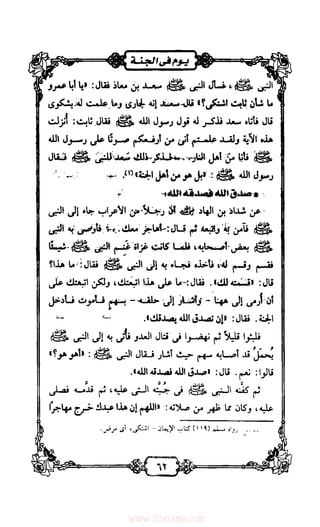 يوم في الجنة
النبي ﷺ، فسأل النبي ﷺ سعد بن معاذ فقال: «يا أبا عمرو
ما شأن ثابت اشتكى؟» قال سعد: إنه لجاري وما علمت له بشكوى
قال فأتاه سعد فذكر له قول رسول الله ﷺ فقال ثابت: أنزلت
هذه الآية ولقد علمتم أني من أرفعكم صوتًا على رسول الله
ﷺ فأنا من أهل النار، فذكر ذلك سعد للنبي ﷺ فقال
رسول الله ﷺ: «بل هو من أهل الجنة»(١).
* صدق الله فصدقه الله:
عن شداد بن الهاد ﷺ أن رجلاً من الأعراب جاء إلى النبي
ﷺ فآمن به واتبعه ثم قال: أهاجر معك. فأوصى به النبي
ﷺ بعض أصحابه، فلما كانت غزاة غنم النبي ﷺ شيئًا
فقسم وقسم له، فأخذه فجاء به إلى النبي ﷺ فقال: ما هذا؟
قال: «قسمته لك». قال: ما على هذا اتبعتك، ولكن اتبعتك على
أن أرمى إلى ههنا - وأشار إلى حلقه - بسهم فأموت فأدخل
الجنة. فقال: «إن تصدق الله يصدقك».
فلبثوا قليلاً ثم نهضوا في قتال العدو فأتي به إلى النبي ﷺ
يُحمل قد أصابه سهم حيث أشار فقال النبي ﷺ: «أهو هو؟»
قالوا: نعم. قال: «صدق الله فصدقه الله».
ثم كفنه النبي ﷺ في جُبته التي عليه، ثم قدمه فصلى
عليه، وكان مما ظهر من صلاته: «اللهم إن هذا عبدك خرج مهاجرًا
رواه مسلم (١١٩) كتاب الإيمان - اشتكى، أي مرض.
٦٢
www.ibtesama.com